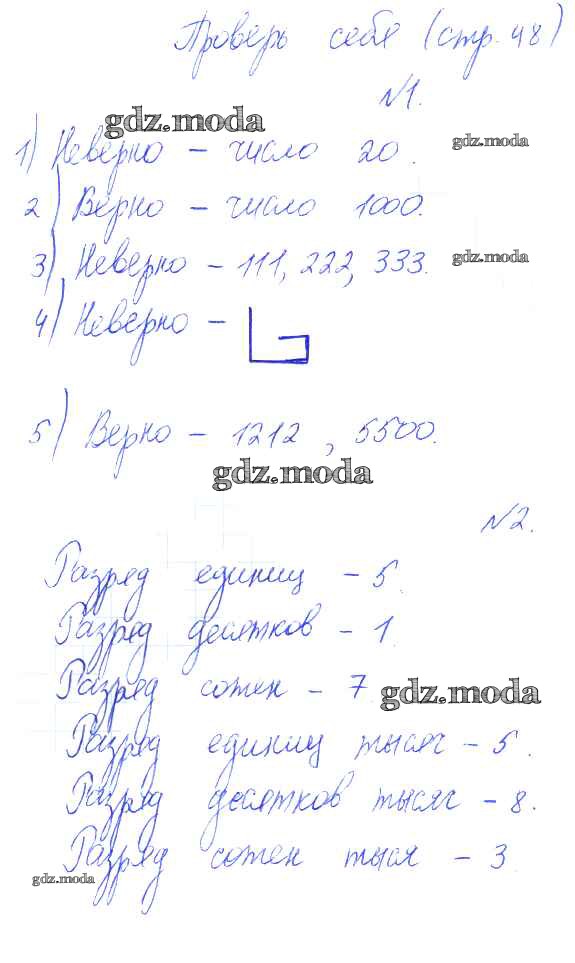 Проверь себя (стр. 48)
№1.
gdz.moda
1) Неверно – число 20.
gdz.moda
2) Верно – число 1000.
3) Неверно – 111, 222, 333.
gdz.moda
4) Неверно –
5) Верно – 1212, 5500.
gdz.moda
№2.
Разряд единиц – 5.
Разряд десятков – 1.
Разряд сотен – 7
gdz.moda
Разряд единиц тысяч – 5.
Разряд десятков тысяч – 8.
Разряд сотен тыся – 3
gdz.moda